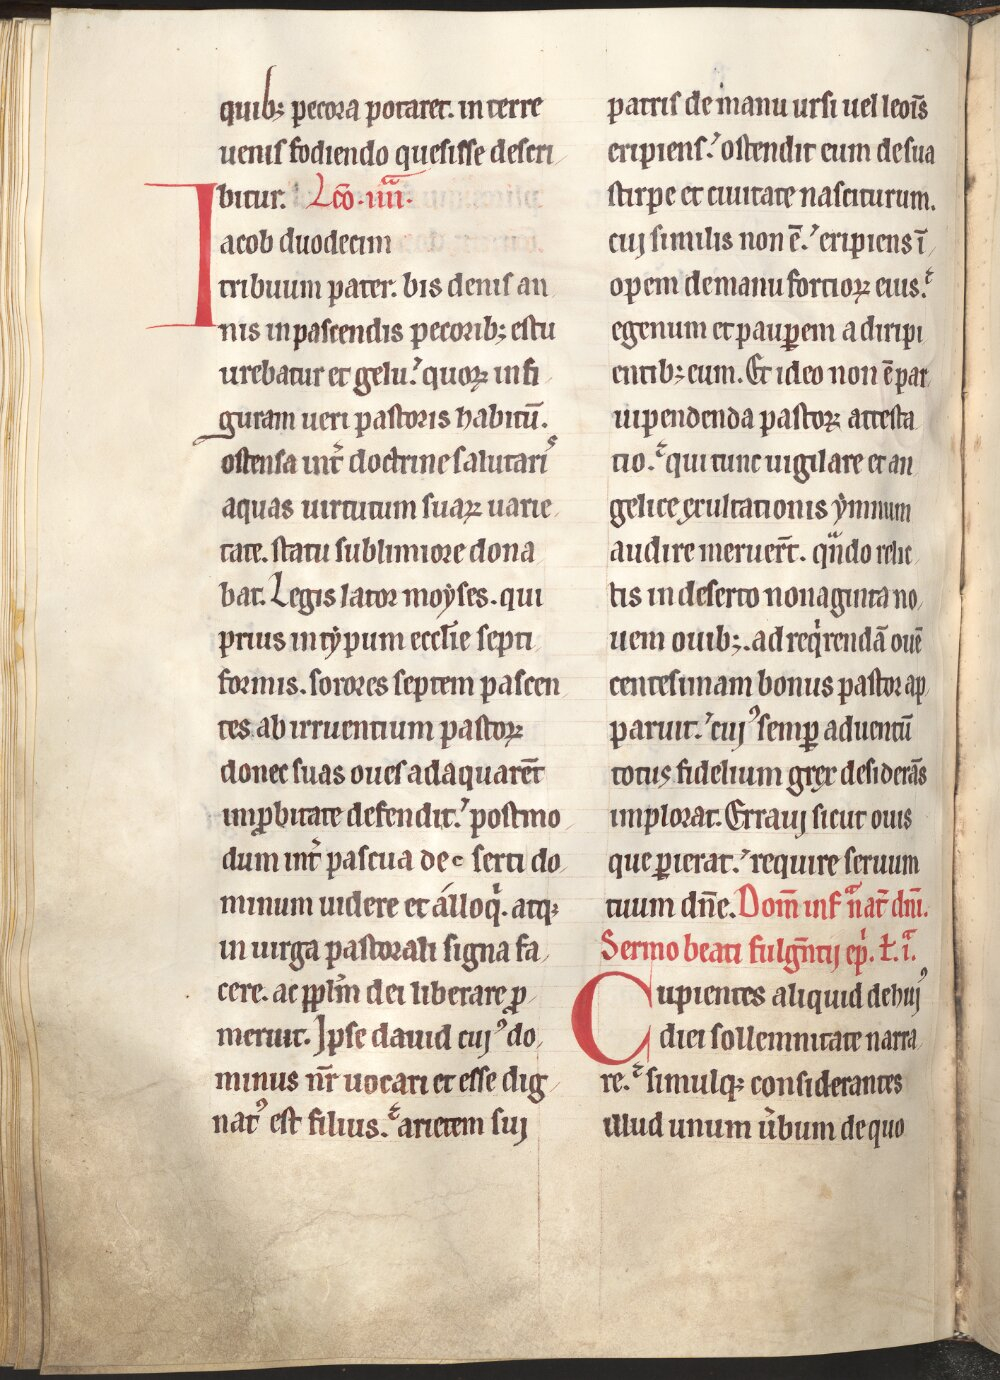 quib; pecora potaret. in terre
uenis fodiendo quesisse descri
bitur. Lc̄o. iiii.
Iacob duodecim
tribuum pater. bis denis an
nis in pascendis pecorib; estu
urebatur et gelu. quoꝝ in fi
guram ueri pastoris habitū.
ostensa int̄ doctrine salutaris
aquas uirtutum suaꝝ uarie
tate. statu sublimiore dona
bat. Legis lator moẏses. qui
prius in tẏpum eccl̄ie septi
formis. sorores septem pascen
tes ab irruentium pastoꝝ
donec suas oues adaquarēt
imꝓbitate defendit. postmo
dum int̄ pascua de serti do
minum uidere et álloq̇. atq;
in uirga pastorali signa fa
cere. ac ꝓpl̄m dei liberare ꝓ
meruit. Ipse dauid cuiꝰ do
minus nr̄ uocari et esse dig
natꝰ est filius. arietem sui
patris de manu ursi uel leoīs
eripiens. ostendit eum de sua
stirpe et ciuitate nasciturum.
cui similis non ē. eripiens ī
opem de manu fortioꝝ eius.
egenum et pauꝑem a diripi
entib; eum. Et ideo non ē par
uipendenda pastoꝝ attesta
tio. qui tunc uigilare et an
gelice exultationis ẏmnum
audire meruer̄t. qn̄do relic
tis in deserto nonaginta no
uem ouib;. ad reqͥrendā ouē
centesimam bonus pastor ap
paruit. cuiꝰ semꝑ aduentū
totus fidelium grex desiderās
implorat. Erraui sicut ouis
que ꝑierat. require seruum
tuum dn̄e. Dom̄ infͣ nat̄ dn̄i.
Sermo beati fulgn̄tij ep̄i. ł. iͣ.
Cupientes aliquid de huiꝰ
diei sollemnitate narra
re. simulq; considerantes
illud unum u̇bum de quo